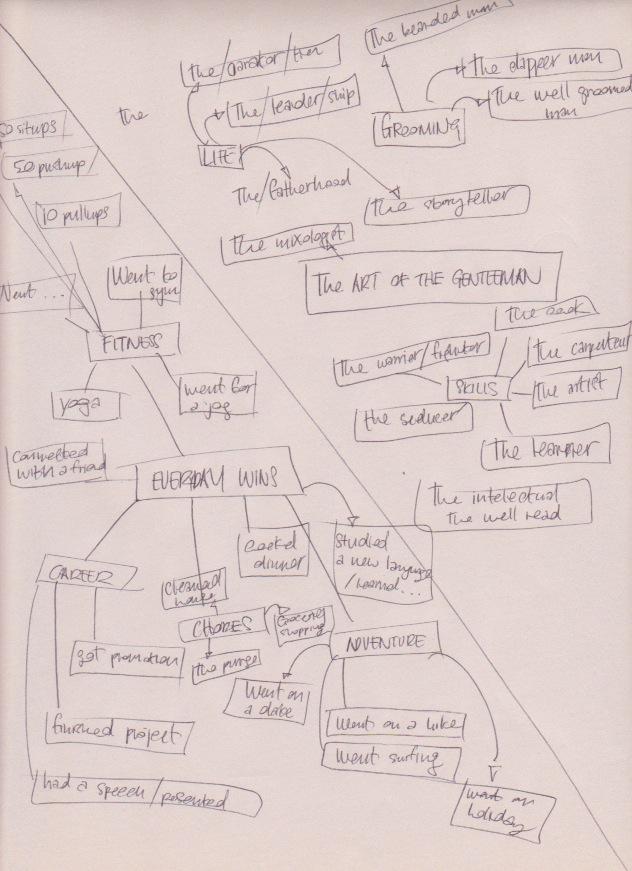 The bearded man
the
the dapper man
The well groomed
man
GROOMING
The/leader/ship
LIFE
The/fatherhood
the storyteller
the mixologist
The ART OF THE GENTLEMAN
the
50 situps
50 pushup/
10 pullups
Went to
gym
FITNESS
yoga
went for
a jog
The warrior/
the seducer
SKILLS
the carpenter
the artist
The learner
The intelectual
The well read
connected
with a friend
EVERYDAY WINS
cooked
dinner
studied
a new language
/learned...
CAREER
got promotion
finished project
had a speech/presented
cleaned
house
CHORES
Groceries
shopping
the purge
ADVENTURE
Went on
a date
went on a hike
went surfing
went on
holiday